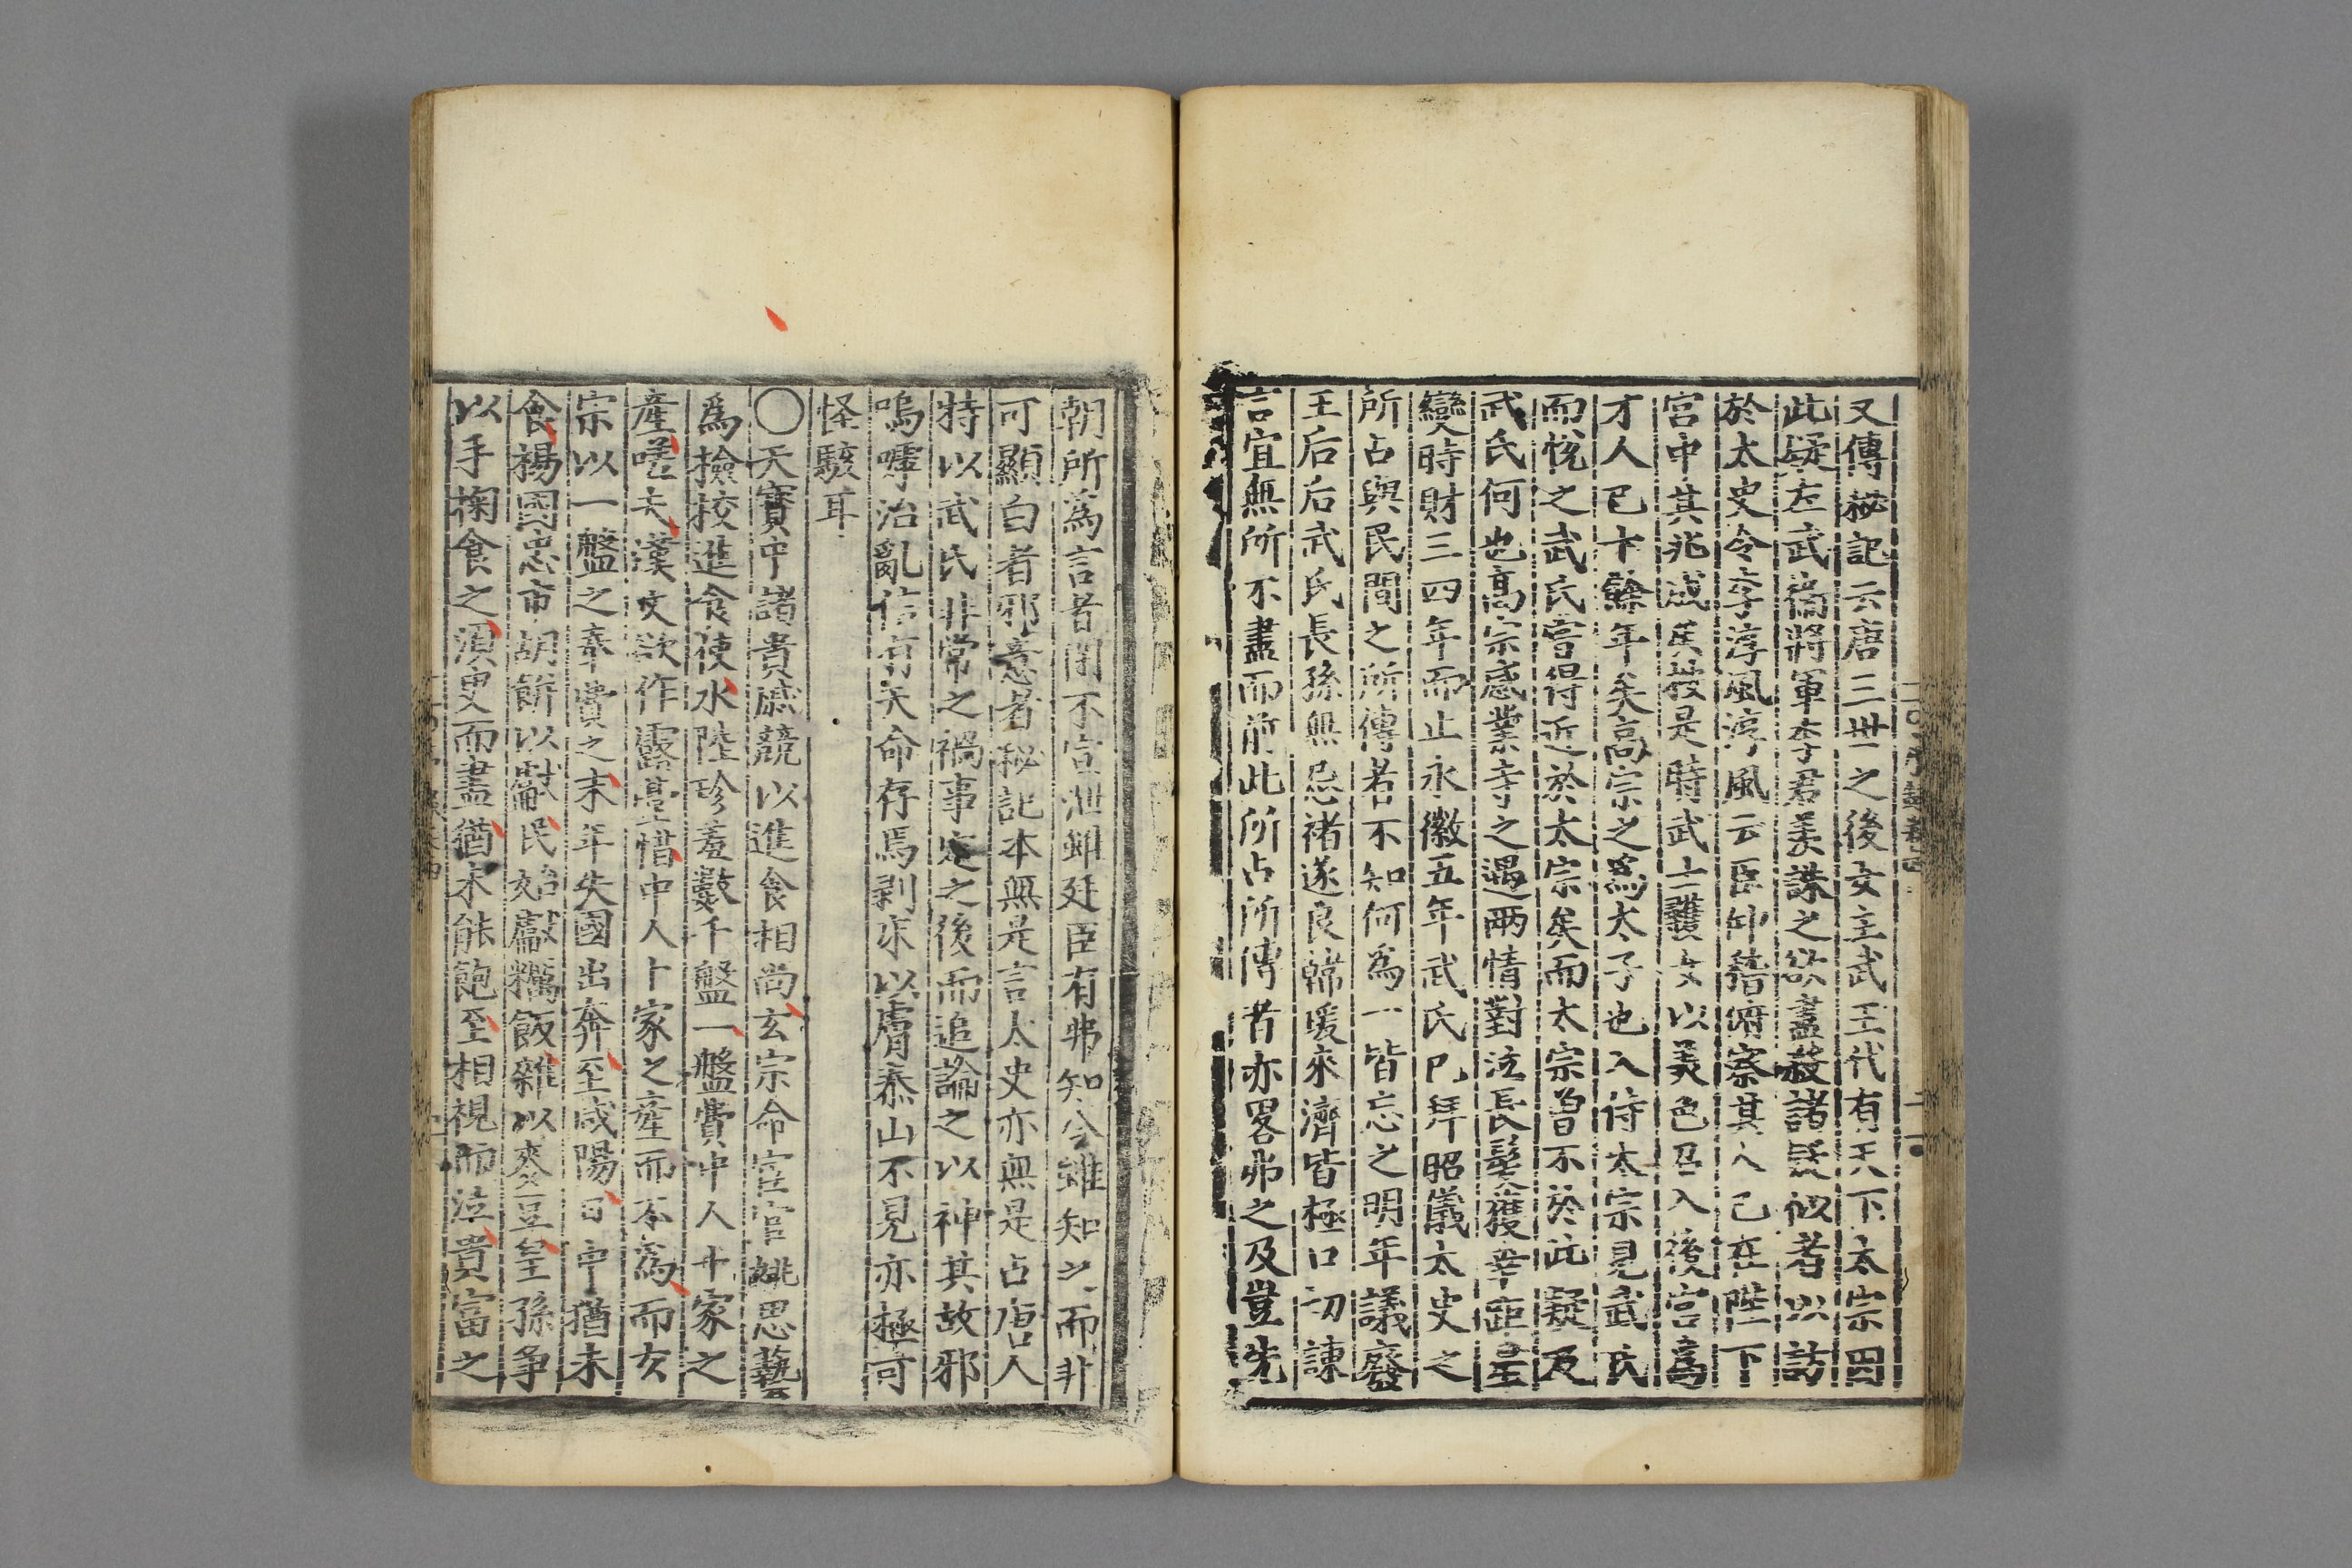 又傳秘記云唐三世之後女主武王代有天下太宗因
此疑左武衛將軍李君羨誅之欲盡殺諸疑似者以訪
於太史令李淳風淳風云臣仰稽俯察其人已在陛下
宮中其兆成矣是時武士彠女以美色召入後宮爲
才人已十餘年矣高宗之爲太子也入侍太宗見武氏
而悅之武氏嘗得近於太宗矣而太宗曾不於此疑及
武氏何也高宗感業寺之遇兩情對泣長髮獲幸距星
變時財三四年而止永徽五年武氏已拜昭儀太史之
所占與民間之所傳者不知何爲一皆忘之明年議廢
王后后武氏長孫無忌褚遂良韓瑗來濟皆極口切諫
言宜無所不盡而前此所占所傳者亦畧弗之及豈先
朝所爲言者閉不宣泄卿廷臣有弗知今雖知之而非
可顯白者邪意者秘記本無是言太史亦無是占唐人
特以武氏非常之禍事定之後而追論之以神其故邪
嗚嘑治亂信有天命存焉剥床以膚泰山不見亦極可
怪駭耳
〇天寶中諸貴戚競以進食相尚玄宗命宦官姚思藝
爲撿校進食使水陸珍羞數千盤一盤費中人十家之
產嗟夫漢文欲作露臺惜中人十家之產而不爲而玄
宗以一盤之章費之末年失國出奔至咸陽日中猶未
食楊國忠市胡餅以獻民始獻糲飯雜以麥豆皇孫爭
以手掬食之湏臾而盡猶未能飽至相視而泣貴富之